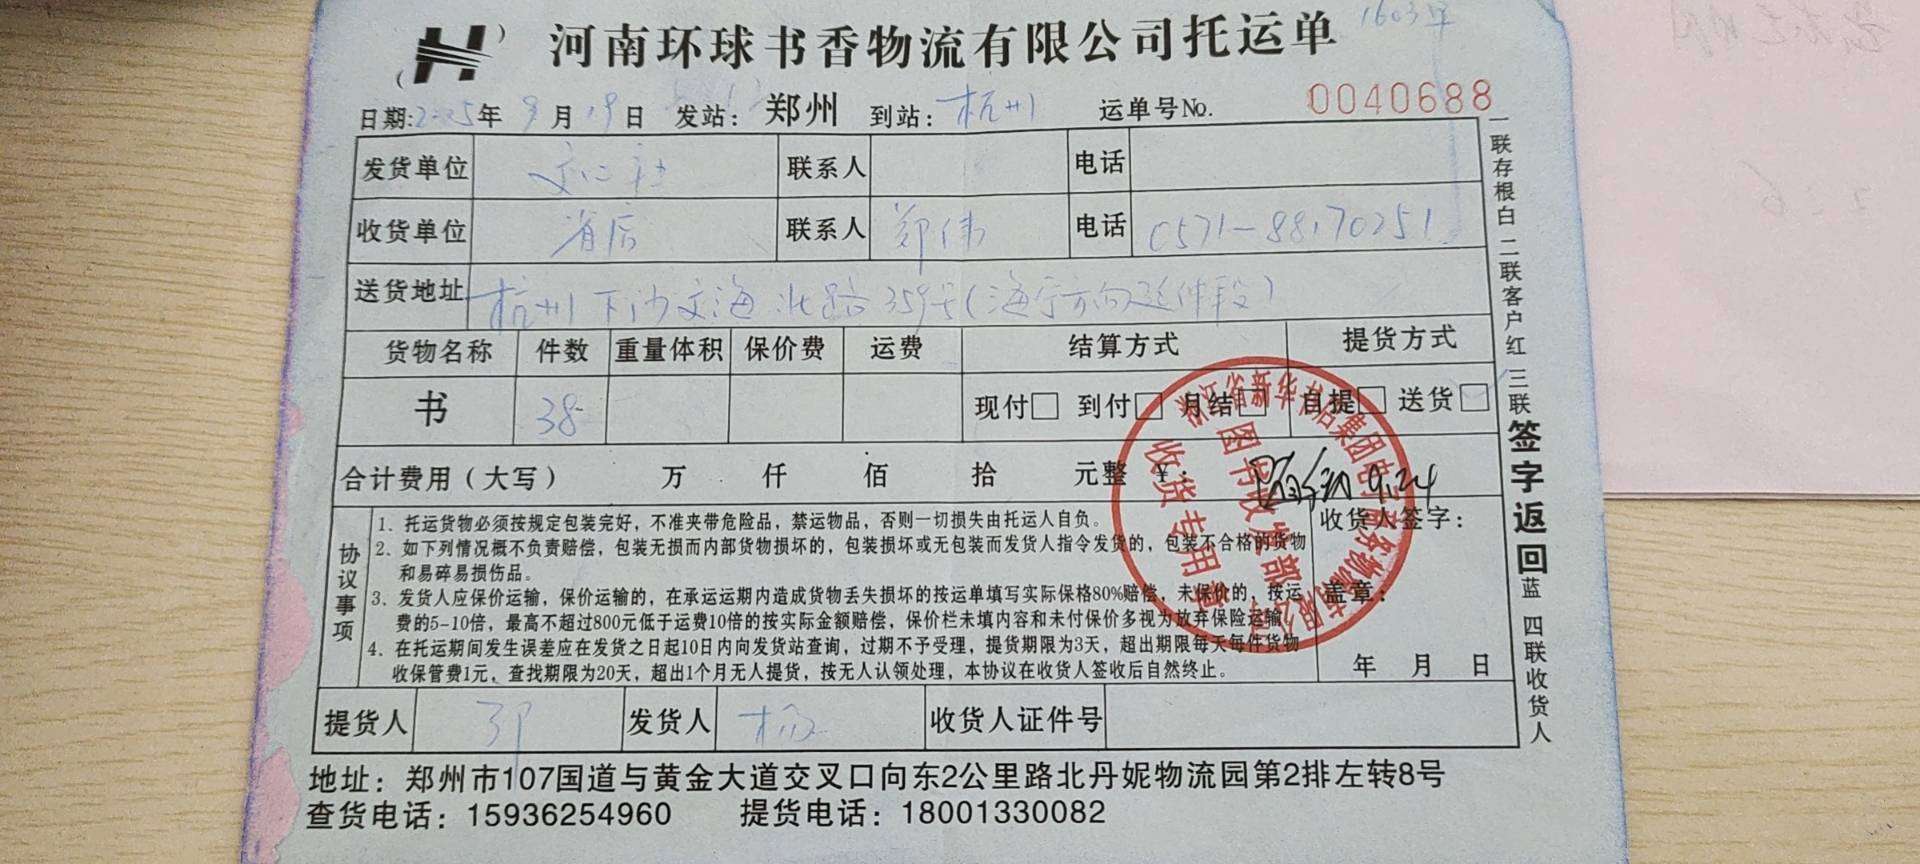 河南环球书香物流有限公司托运单
日期:2025年9月19日 发站:郑州 到站:杭州 运单号No. 0040688
发货单位 文心社 联系人 电话
收货单位 省店 联系人 郑伟 电话 0571-88170251
送货地址 杭州下沙文海北路359号(海宁方向延伸段)
货物名称 件数 重量体积 保价费 运费 结算方式 提货方式
书 38 现付□ 到付□ 月结□ 自提□ 送货□
合计费用(大写) 万 仟 佰 拾 元整 ¥: 9.24
协议事项
1、托运货物必须按规定包装完好,不准夹带危险品,禁运物品,否则一切损失由托运人自负。
2、如下列情况概不负责赔偿,包装无损而内部货物损坏的,包装损坏或无包装而发货人指令发货的,包装不合格的货物
和易碎易损伤品。
3、发货人应保价运输,保价运输的,在承运运期内造成货物丢失损坏的按运单填写实际保格80%赔偿,未保价的,按运
费的5-10倍,最高不超过800元低于运费10倍的按实际金额赔偿,保价栏未填内容和未付保价多视为放弃保险运输。
4、在托运期间发生误差应在发货之日起10日内向发货站查询,过期不予受理,提货期限为3天,超出期限每天每件货物
收保管费1元,查找期限为20天,超出1个月无人提货,按无人认领处理,本协议在收货人签收后自然终止。
收货人签字:
盖章:
年 月 日
浙江省新华书店集团电子商务物流有限公司
图书收发部
收货专用章
提货人 邓 发货人 收货人证件号
地址:郑州市107国道与黄金大道交叉口向东2公里路北丹妮物流园第2排左转8号
查货电话:15936254960 提货电话:18001330082
一联存根白 二联客户红 三联签字返回蓝 四联收货人